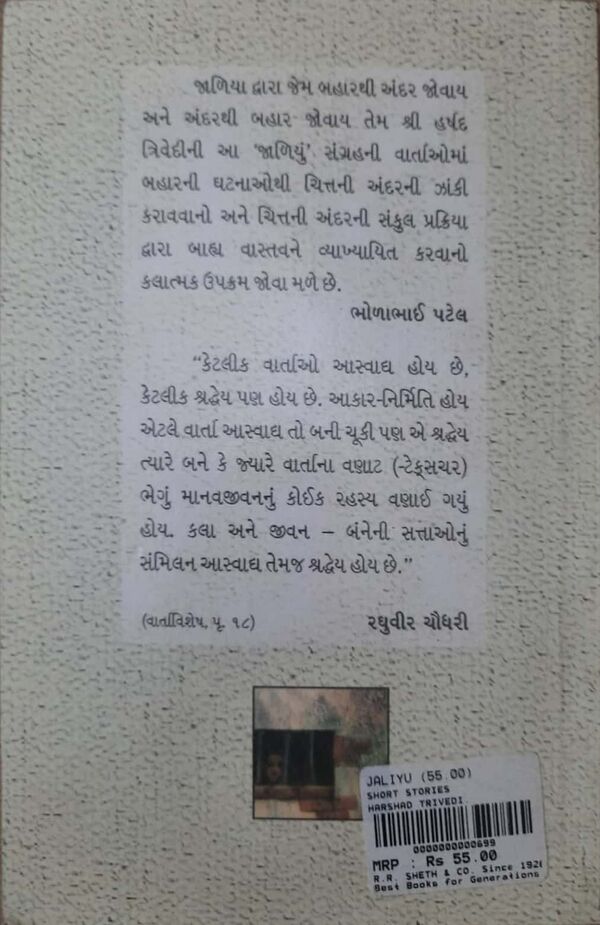 જાળિયા દ્વારા જેમ બહારથી અંદર જોવાય
અને અંદરથી બહાર જોવાય તેમ શ્રી હર્ષદ
ત્રિવેદીની આ 'જાળિયું' સંગ્રહની વાર્તાઓમાં
બહારની ઘટનાઓથી ચિત્તની અંદરની ઝાંકી
કરાવવાનો અને ચિત્તની અંદરની સંકુલ પ્રક્રિયા
દ્વારા બાહ્ય વાસ્તવને વ્યાખ્યાયિત કરવાનો
કલાત્મક ઉપક્રમ જોવા મળે છે.
ભોળાભાઈ પટેલ
“કેટલીક વાર્તાઓ આસ્વાદ્ય હોય છે,
કેટલીક શ્રદ્ધેય પણ હોય છે. આકાર-નિર્મિતિ હોય
એટલે વાર્તા આસ્વાદ્ય તો બની ચૂકી પણ એ શ્રદ્ધેય
ત્યારે બને કે જ્યારે વાર્તાના વણાટ (-ટેક્સચર)
ભેગું માનવજીવનનું કોઈક રહસ્ય વણાઈ ગયું
હોય. કલા અને જીવન – બંનેની સત્તાઓનું
સંમિલન આસ્વાદ્ય તેમજ શ્રદ્ધેય હોય છે.”
(વાર્તાવિશેષ, પૃ. ૧૮) રઘુવીર ચૌધરી
JALIYU (55.00)
SHORT STORIES
HARSHAD TRIVEDI.
0000000000699
MRP : Rs 55.00
R.R. SHETH & CO. Since 1926
Best Books for Generations